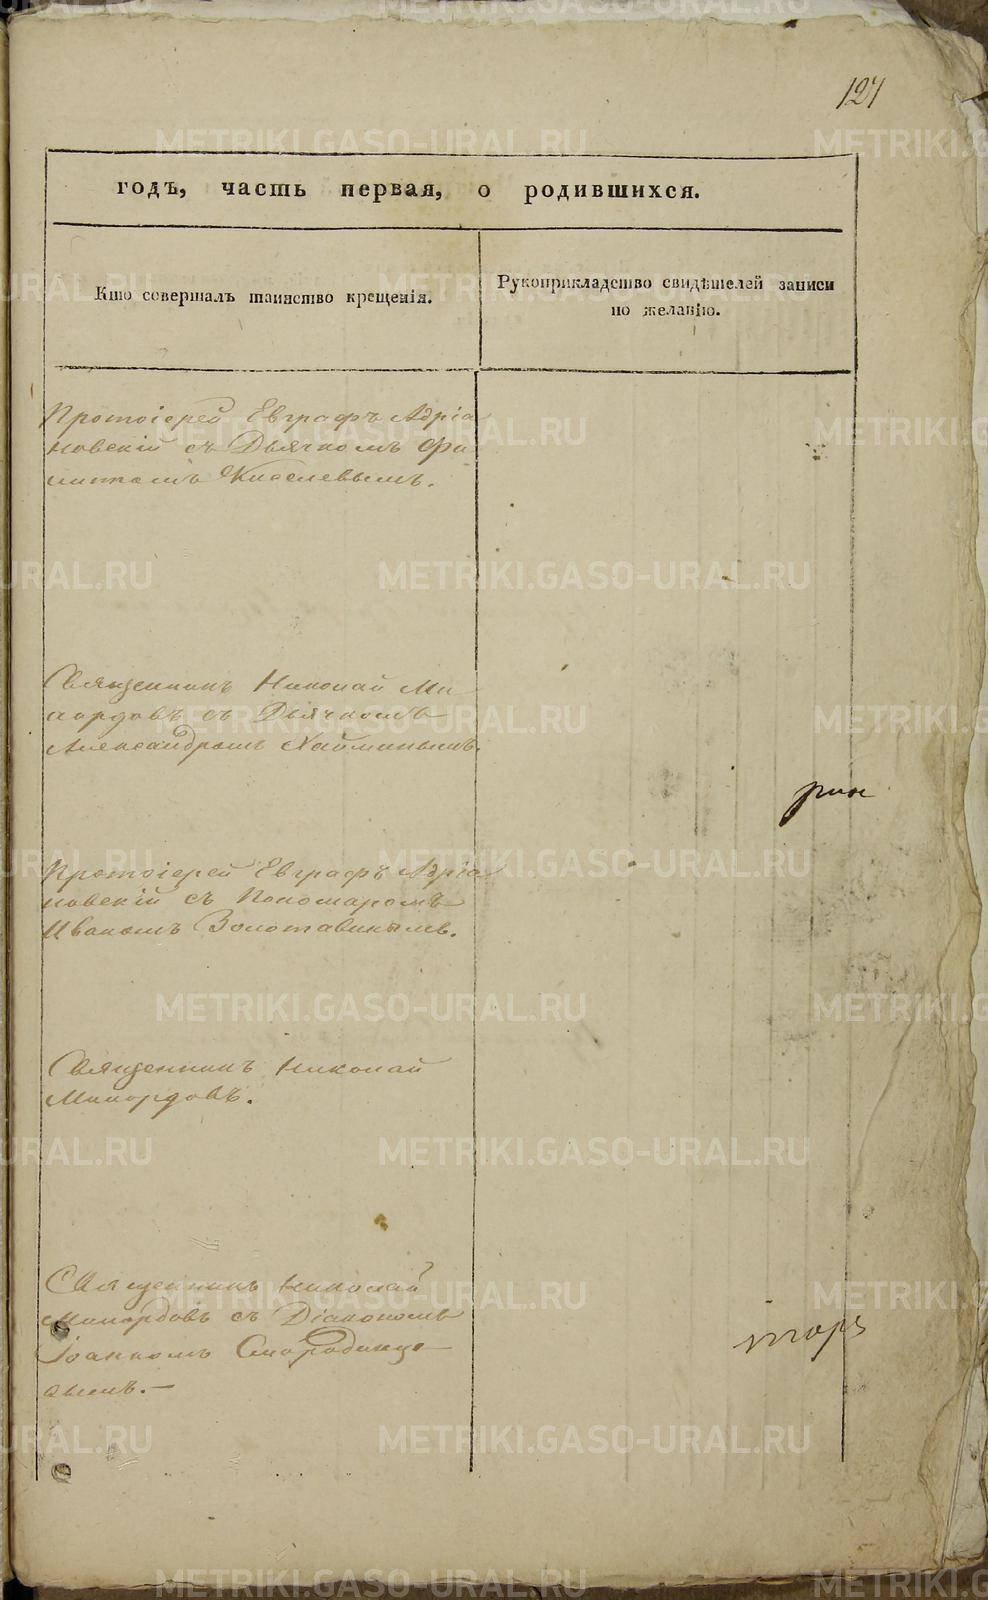 127
годъ, часть первая, о родившихся.
Кто совершалъ таинство крещенія.
Рукоприкладство свидѣтелей записи
по желанію.
Протоіерей Евграфъ Адріа
новскій съ Дьячкомъ Фи
Киселевымъ.
Священникъ Николай Ми
лордовъ съ Дьячкомъ
Александромъ
Протоіерей Евграфъ Адріа
новскій съ Пономаремъ
Иваномъ Золотавинымъ.
Священникъ Николай
Милордовъ.
Священникъ Николай
Милордовъ съ Діакономъ
Іоанномъ Смородинце
вымъ.
METRIKI.GASO-URAL.RU